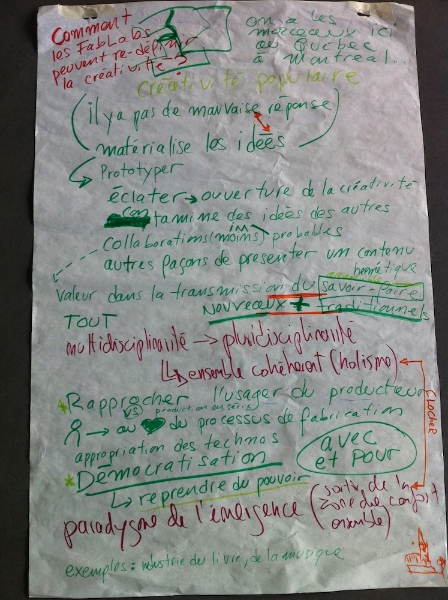 Comment
les FabLabs
peuvent re-définir
la créativité ?
on a les
morceaux ici
au Québec
à Montréal...
créativité populaire
(il y a pas de mauvaise réponse
matérialise les idées)
Prototyper
éclater → ouverture de la créativité
contamine des idées des autres
collaborations (moins) improbables
autres façons de présenter un contenu
hermétique
valeur dans la transmission du savoir-faire
nouveaux + traditionnels
TOUT
multidisciplinarité → pluridisciplinarité
↳ ensemble cohérent (holisme)
* Rapprocher l'usager du producteur
vs production en série
→ au ♥ du processus de fabrication
appropriation des technos
avec
et pour
* Démocratisation
↳ reprendre du pouvoir
CLOCHER
paradygme de l'émergence (sortir de la
zone de confort
ensemble)
exemples : industrie du livre, de la musique